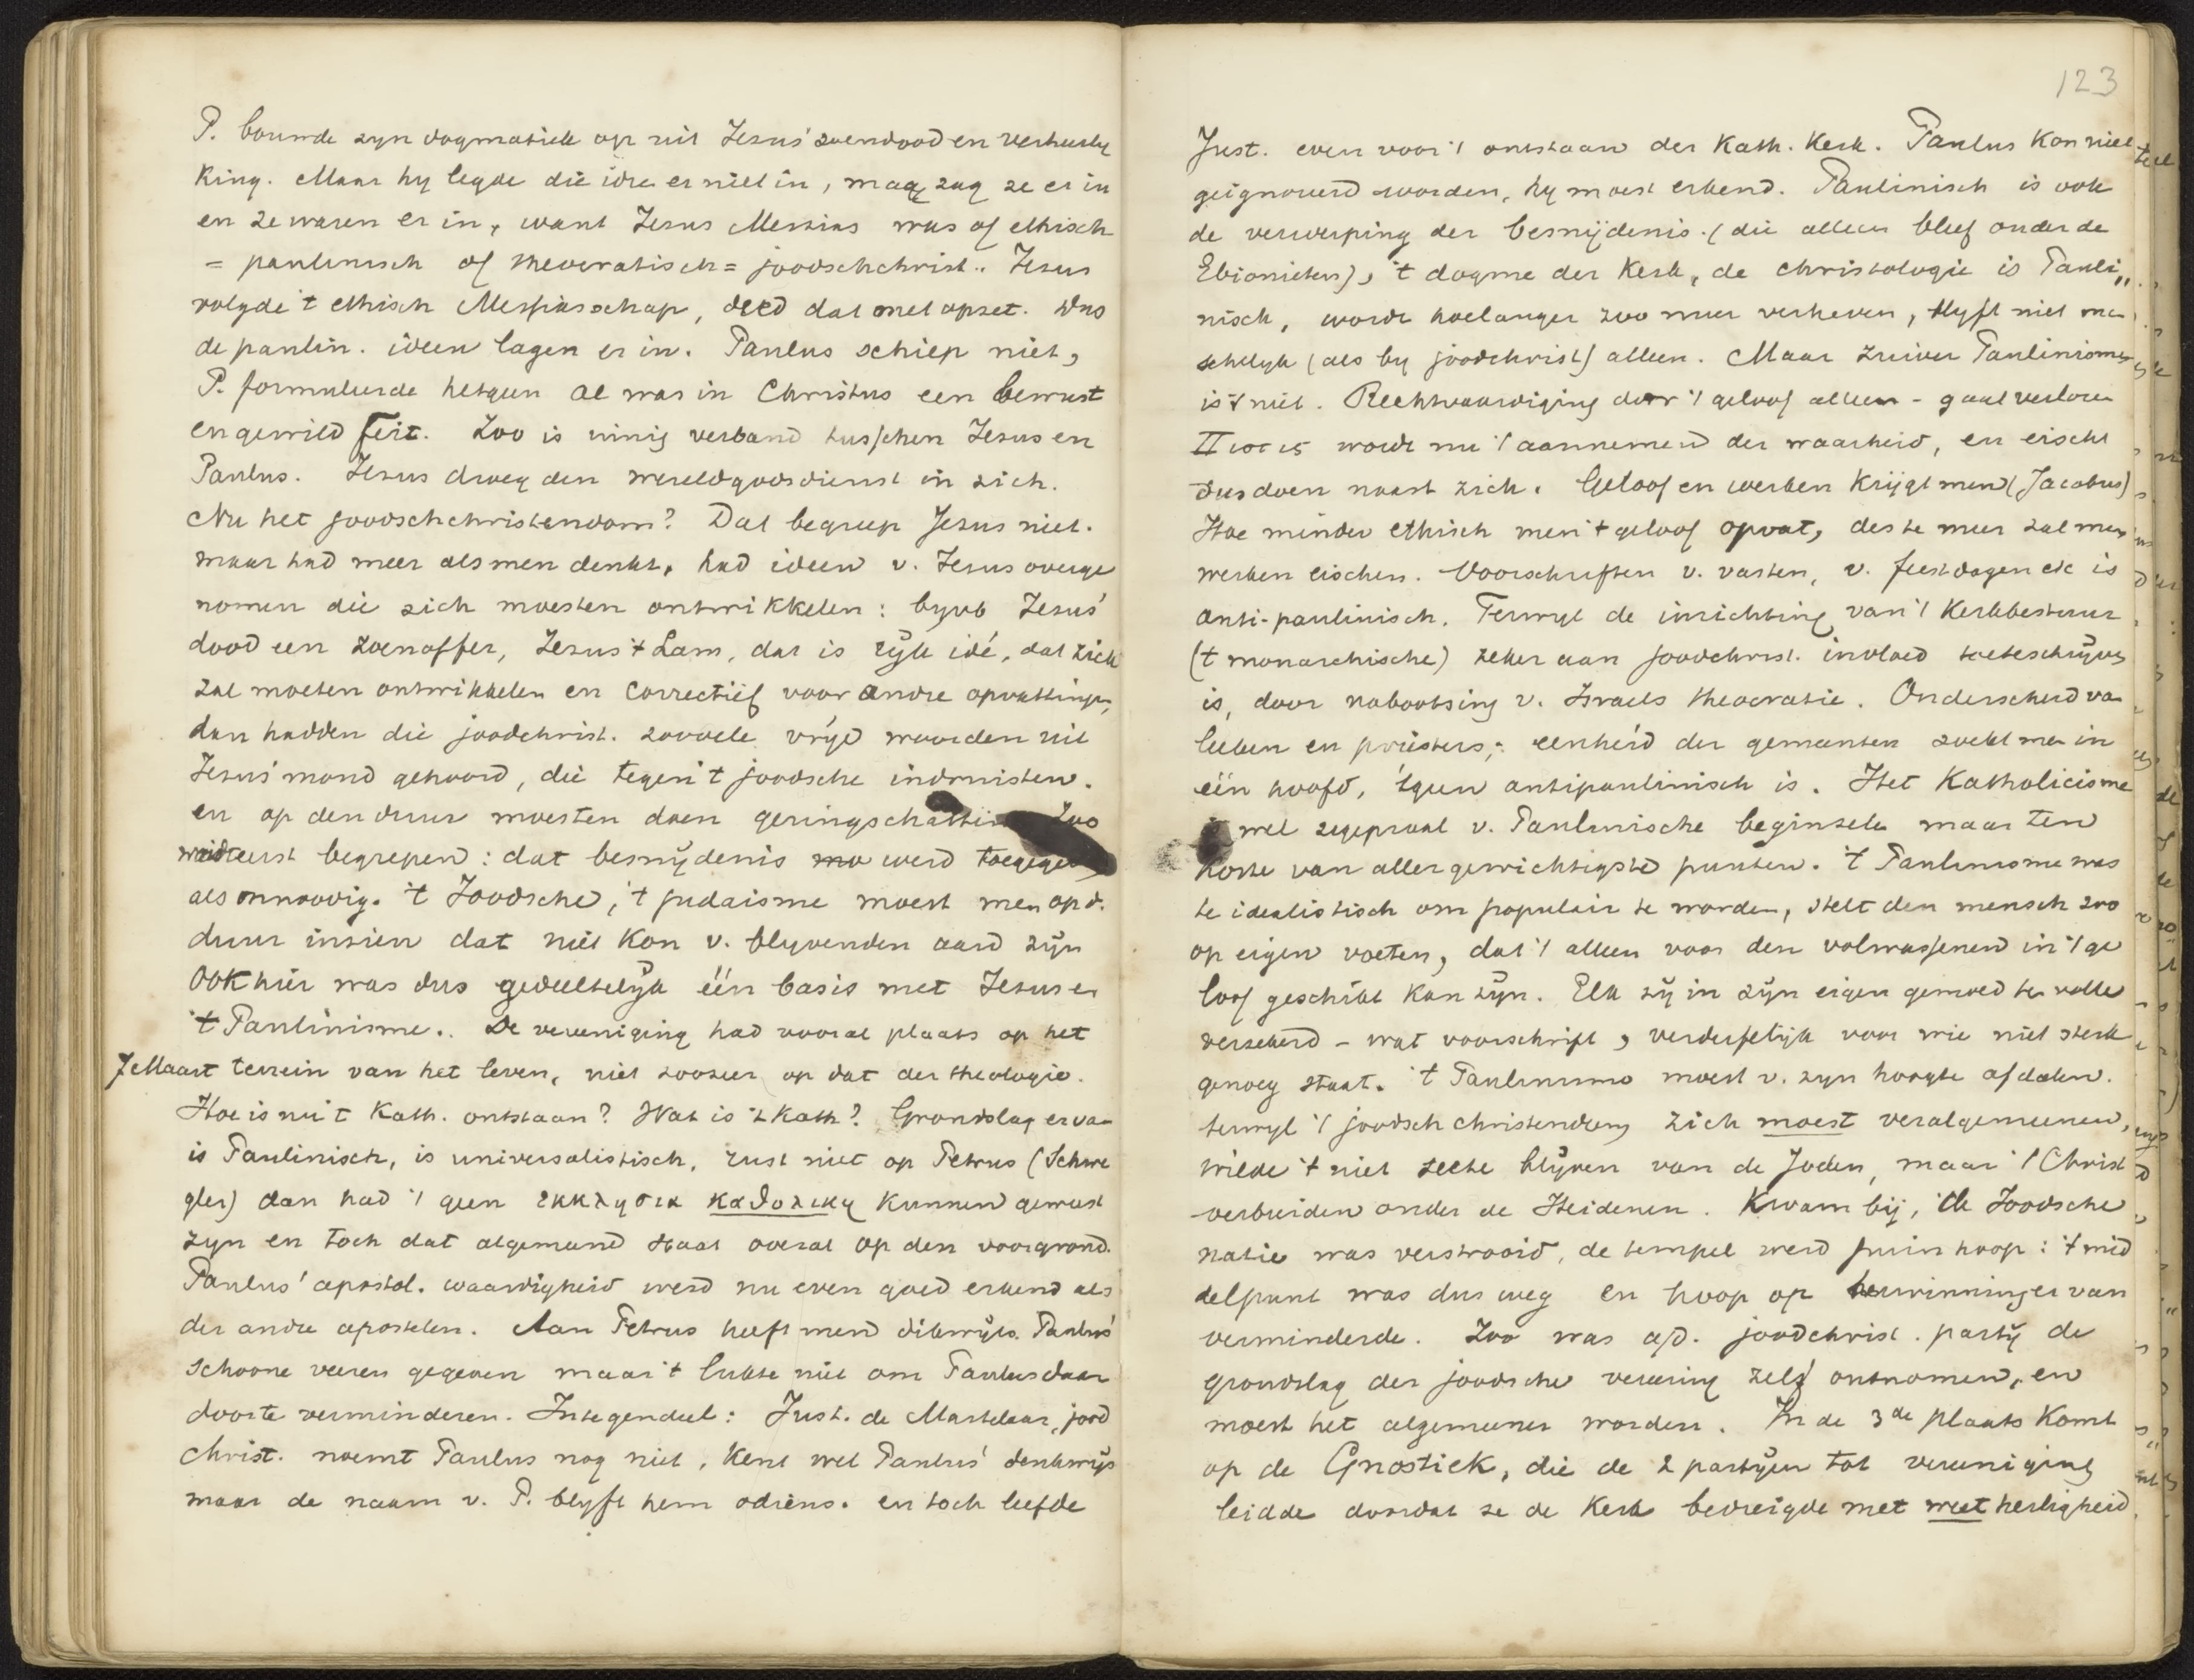 P. bouwde zyn dogmatiek op uit Jezus' zoendood en verheerly
king. Maar hy legde die idee er niet in, maar zag ze er in
en ze waren er in, want Jezus Messias was of ethisch
= paulinisch of theocratisch = joodschchrist.. Jezus
volgde 't ethisch Messiasschap, deed dat met opzet. Dus
de paulin. ideen lagen er in. Paulus schiep niet,
P. formuleerde hetgeen al was in Christus een bewust
en gewild feit. Zoo is innig verband tusschen Jezus en
Paulus. Jezus droeg den wereldgodsdienst in zich.
Nu het joodschchristendom? Dat begreep Jezus niet.
maar had meer als men denkt, had ideen v. Jezus overge
nomen die zich moesten ontwikkelen: byvb Jezus'
dood een zoenoffer, Jezus 't Lam, dat is ryk idé, dat zich
zal moeten ontwikkelen en correctief voor andre opvattingen,
dan hadden die joodchrist. zoovele vrye woorden uit
Jezus' mond gehoord, die tegen 't joodsche indruisten.
en op den duur moesten doen geringschatting Zoo
werd eerst begrepen: dat besnydenis werd toegegeven
als onnoodig. 't Joodsche, 't judaisme moest men op d.
duur inzien dat niet kon v. blyvenden aard zyn
Ook hier was dus gedeeltelyk één basis met Jezus en
't Paulinisme.. De vereeniging had vooral plaats op het
7 Maart terrein van het leven, niet zoozeer op dat der theologie.
Hoe is nu 't Kath. ontstaan? Wat is 't Kath? Grondslag er van
is Paulinisch, is universalistisch, rust niet op Petrus (Schwe
gler) dan had 't geen εκκλησια καθολικη kunnen geweest
zyn en toch dat algemeend staat overal op den voorgrond.
Paulus' apostol. waardigheid werd nu even goed erkend als
der andre apostelen. Aan Petrus heeft men dikwyls Paulus'
schoone veeren gegeven maar 't lukte niet om Paulus daar
door te verminderen. Integendeel: Just. de Martelaar, jood
christ. noemt Paulus nog niet, kent wel Paulus' denkwys
maar de naam v. P. blyft hem odieus. en toch leefde
123
Just. even voor 't ontstaan der Kath. Kerk. Paulus kon niet
geignoreerd worden, hy moest erkend. Paulinisch is ook
de verwerping der besnijdenis (die alleen bleef onder de
Ebionieten), 't dogme der Kerk, de christologie is Pauli„
nisch, wordt hoelanger zoo meer verheven, blyft niet men
schelyk (als by joodchrist) alleen. Maar zuiver Paulinisme
is 't niet. Rechtvaardiging door 't geloof alleen - gaat verloren
πιστις wordt nu 't aannemen der waarheid, en eischt
dus doen naast zich. Geloof en werken krijgt men (Jacobus)
Hoe minder ethisch men 't geloof opvat, des te meer zal men
werken eischen. Voorschriften v. vasten, v. feestdagen etc is
anti-paulinisch. Terwyl de inrichting van 't Kerkbestuur
('t monarchische) zeker aan joodchrist. invloed toeteschryven
is, door nabootsing v. Israels theocratie. Onderscheid van
leeken en priesters; eenheid der gemeenten zoekt men in
één hoofd, 'tgeen antipaulinisch is. Het Katholicisme
is wel zegepraal v. Paulinische beginselen maar ten
koste van allergewichtigste punten. 't Paulinisme was
te idealistisch om populair te worden, stelt den mensch zoo
op eigen voeten, dat 't alleen voor den volwassenen in 't ge
loof geschikt kan zyn. Elk zy in zyn eigen gemoed ten volle
verzekerd - wat voorschrift, verderfelyk voor wie niet sterk
genoeg staat. 't Paulinisme moest v. zyn hoogte afdalen.
terwyl 't joodsch christendom zich moest veralgemeenen,
wilde 't niet secte blyven van de Joden, maar 't Christ
verbreiden onder de Heidenen. Kwam bij, de Joodsche
natie was verstrooid, de tempel werd puinhoop: 't mid
delpunt was dus weg en hoop op herwinninge van
verminderde. Zoo was a/d. joodchrist. partij de
grondslag der joodsche vereering zelf ontnomen, en
moest het algemeener worden. In de 3de plaats komt
op de Gnostiek, die de 2 partyen tot vereeniging
leidde doordat ze de Kerk bedreigde met weetherligheid